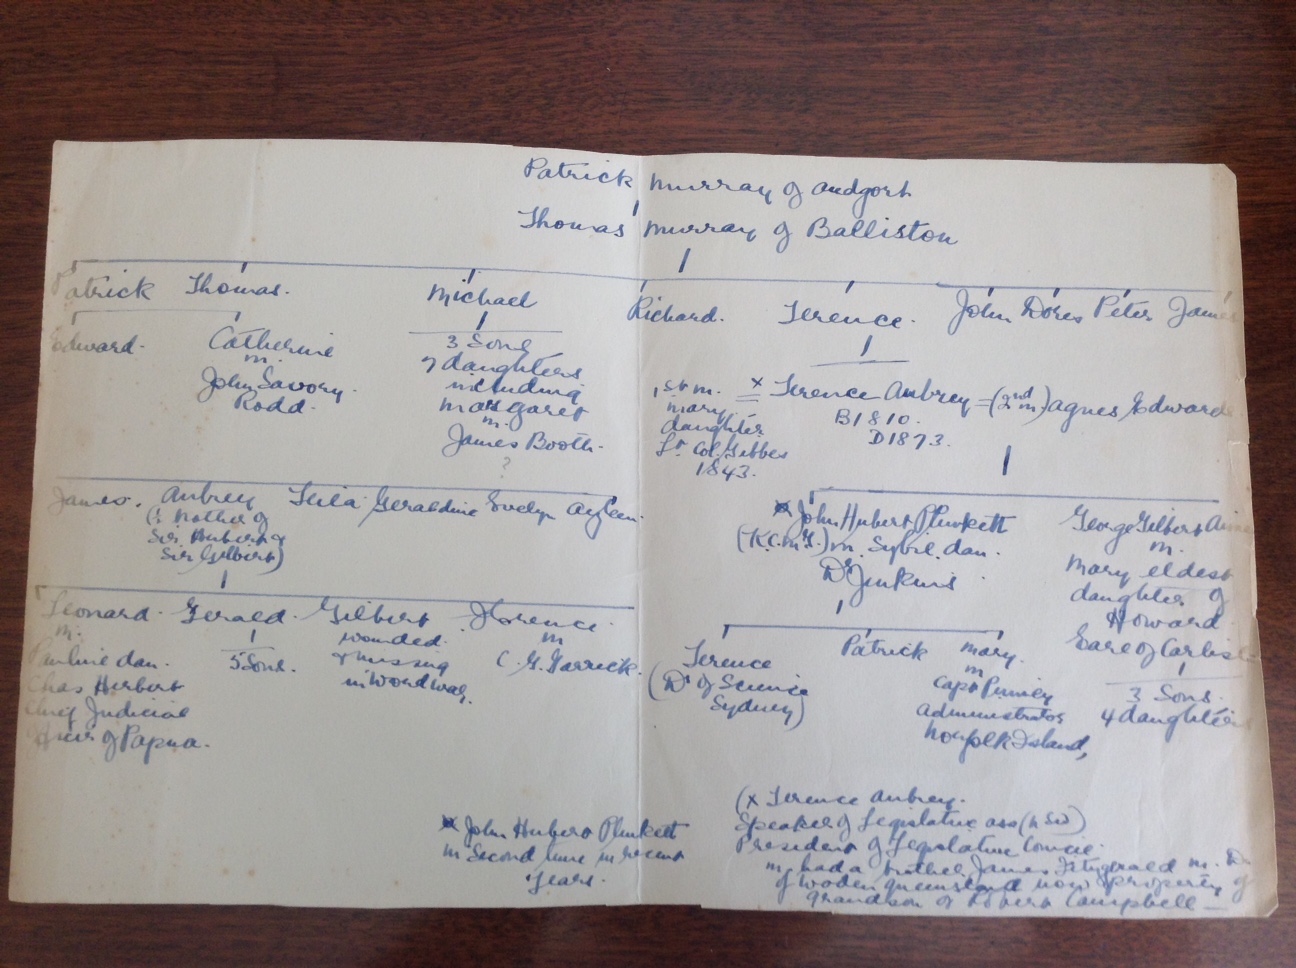 Patrick Murray of Andgort
Thomas Murray of Balliston
Patrick Thomas. Michael Richard. Terence. John Dores Peter James
Edward. Catherine
m.
John Savory.
Rodd.
3 Sons
7 daughters
including
Margaret
m.
James Booth.
?
1st m.
Mary
daughter
Lt Col. Gibbes
1843.
x Terence Aubrey = (2nd m) Agnes Edwards
B1810.
D1873.
James. Aubrey Leila Geraldine Evelyn Ayleen.
(½ brother of
Sir Hubert &
Sir Gilbert)
x John Hubert Plunkett
(K.C.M.G.) m. Sybil. dau.
Dr Jenkins
George Gilbert Aimé
m.
Mary eldest
daughter of
Howard
Earl of Carlisle
3 Sons.
4 daughters
Leonard. Gerald. Gilbert Florence.
m.
Pauline dau.
Chas Herbert
Chief Judicial
of Papua.
5 Sons.
wounded.
& missing
in World War.
m
C. G. Garrick.
Terence
(Dr of Science
Sydney)
Patrick
Mary.
m
Capt Pinney
administrator
Norfolk Island,
x John Hubert Plunkett
m Second time in recent
years.
(x Terence Aubrey.
Speaker of Legislative Ass (NSW)
President of Legislative Council.
had a brother James Fitzgerald m. Dr
of Woden Queensland now property of
grandson of Robert Campbell —